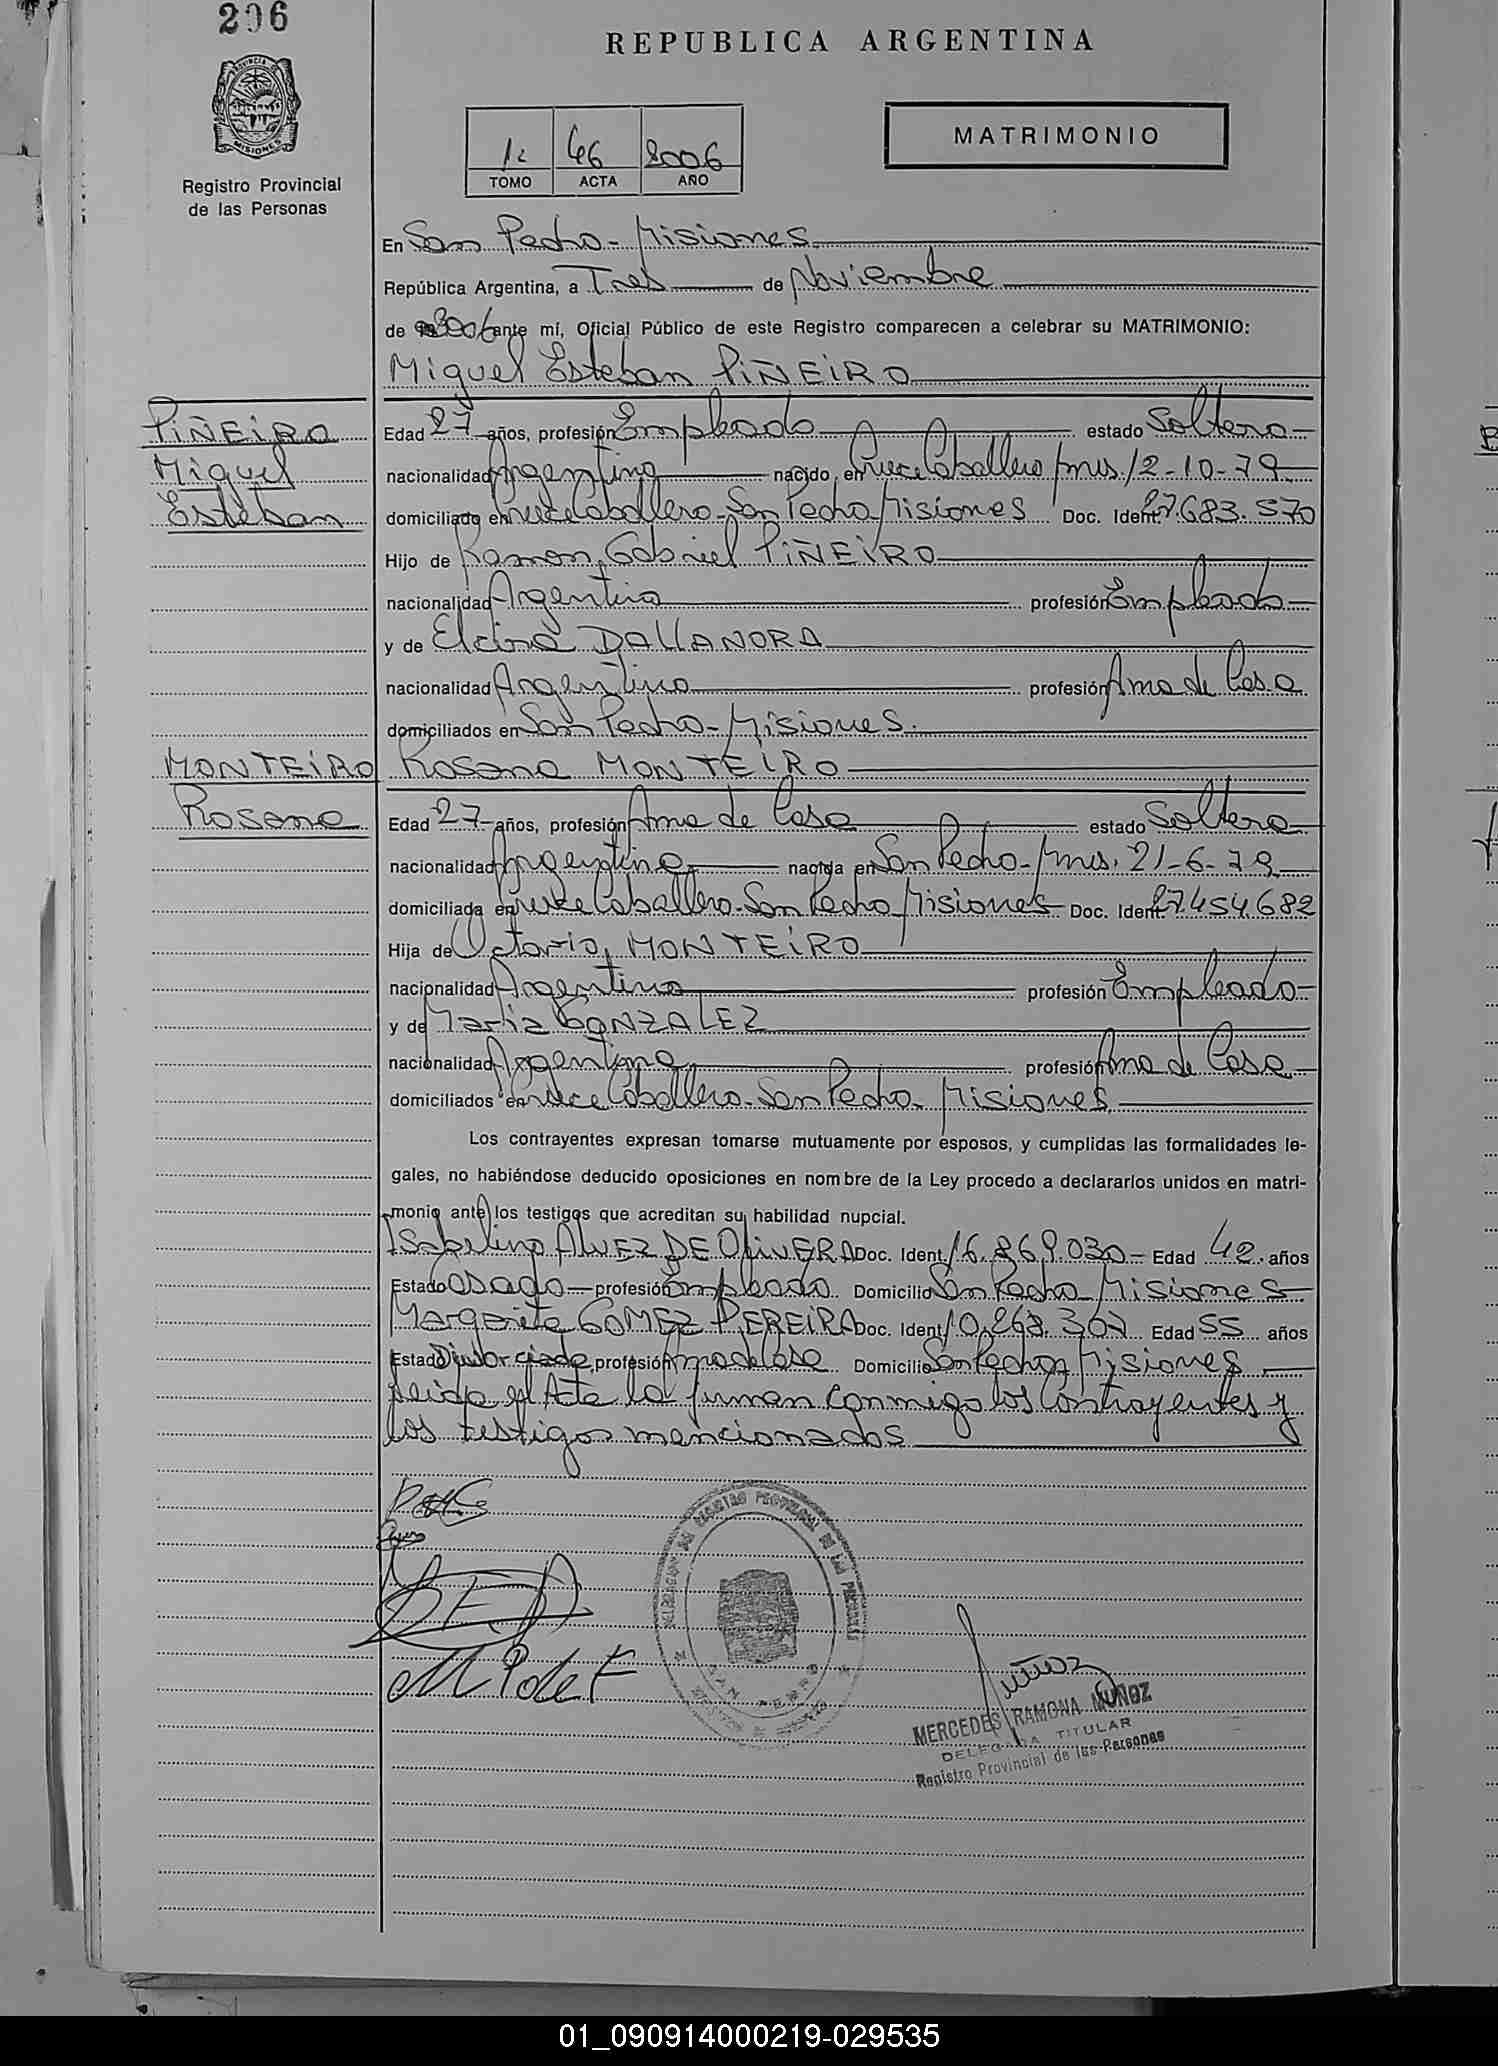 206
REPUBLICA ARGENTINA
PROVINCIA DE
MISIONES
Registro Provincial
de las Personas
46 2006
TOMO ACTA AÑO
MATRIMONIO
En San Pedro - Misiones
República Argentina, a Tres de Noviembre
de 2006 ante mí, Oficial Público de este Registro comparecen a celebrar su MATRIMONIO:
Miguel Esteban PIÑEIRO
PIÑEIRO
Miguel
Esteban
Edad 27 años, profesión Empleado estado Soltero
nacionalidad Argentina nacido en Cruce Caballero /mis. 12-10-79
domiciliado en Cruce Caballero - San Pedro Misiones Doc. Ident. 27.683.570
Hijo de Ramon Gabriel PIÑEIRO
nacionalidad Argentina profesión Empleado
y de Elcira DALLANORA
nacionalidad Argentina profesión Ama de Casa
domiciliados en San Pedro - Misiones.
MONTEIRO
Rosana
Rosana MONTEIRO
Edad 27 años, profesión Ama de Casa estado Soltera
nacionalidad Argentina nacida en San Pedro - mis. 21-6-79
domiciliada en Cruce Caballero - San Pedro Misiones Doc. Ident. 27.454.682
Hija de Octavio MONTEIRO
nacionalidad Argentina profesión Empleado
y de Maria GONZALEZ
nacionalidad Argentina profesión Ama de Casa
domiciliados en Cruce Caballero - San Pedro - Misiones
Los contrayentes expresan tomarse mutuamente por esposos, y cumplidas las formalidades le-
gales, no habiéndose deducido oposiciones en nombre de la Ley procedo a declararlos unidos en matri-
monio ante los testigos que acreditan su habilidad nupcial.
Isabelino ALVEZ DE OLIVERA Doc. Ident. 16.869.030 - Edad 42 años
Estado Casado profesión Empleado Domicilio San Pedro Misiones
Margarita GOMEZ PEREIRA Doc. Ident. 10.268.307 Edad 55 años
Estado Divorciada profesión Ama de Casa Domicilio San Pedro Misiones
Leida el Acta la firman conmigo los Contrayentes y
los testigos mencionados
DELEGACION DEL REGISTRO PROVINCIAL DE LAS PERSONAS
SAN PEDRO
MERCEDES RAMONA MUÑOZ
DELEGADA TITULAR
Registro Provincial de las Personas
01_090914000219-029535